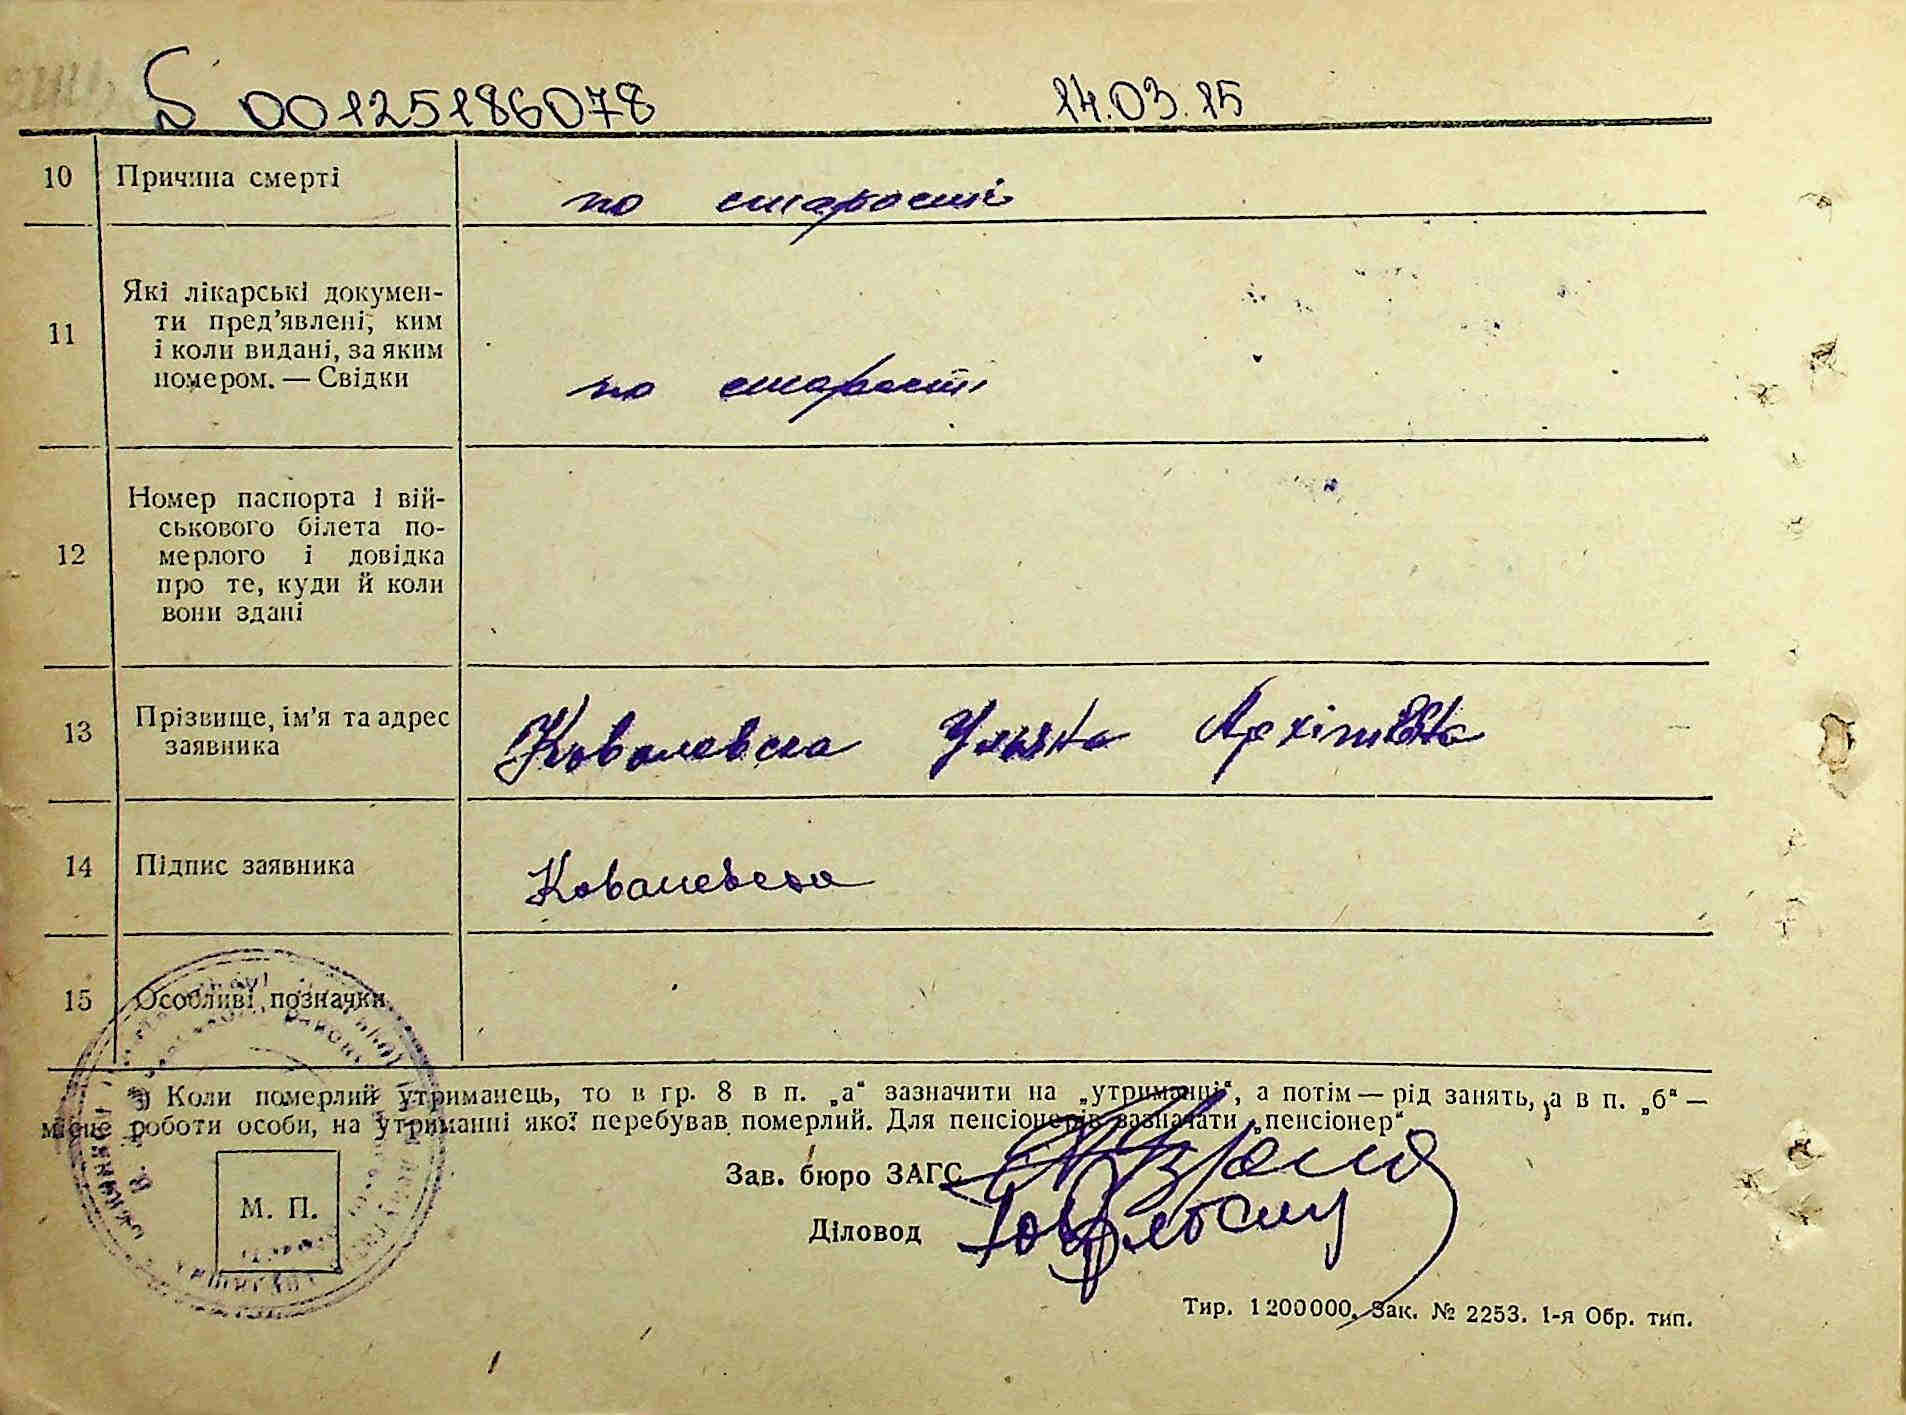 00125186078 14.03.15
10 Причина смерті по старості
11 Які лікарські докумен-
ти пред'явлені, ким
і коли видані, за яким
номером. — Свідки
по старості
12 Номер паспорта і вій-
ськового білета по-
мерлого і довідка
про те, куди й коли
вони здані
13 Прізвище, ім'я та адрес
заявника
Ковалевска Уляна
14 Підпис заявника Ковалевска
15 Особливі позначки
Коли померлий утриманець, то в гр. 8 в п. „а“ зазначити на „утриманні“, а потім — рід занять, а в п. „б“ —
місце роботи особи, на утриманні якої перебував померлий. Для пенсіонерів зазначати „пенсіонер“
Зав. бюро ЗАГС
Діловод
М. П.
Тир. 1200000. Зак. № 2253. 1-я Обр. тип.